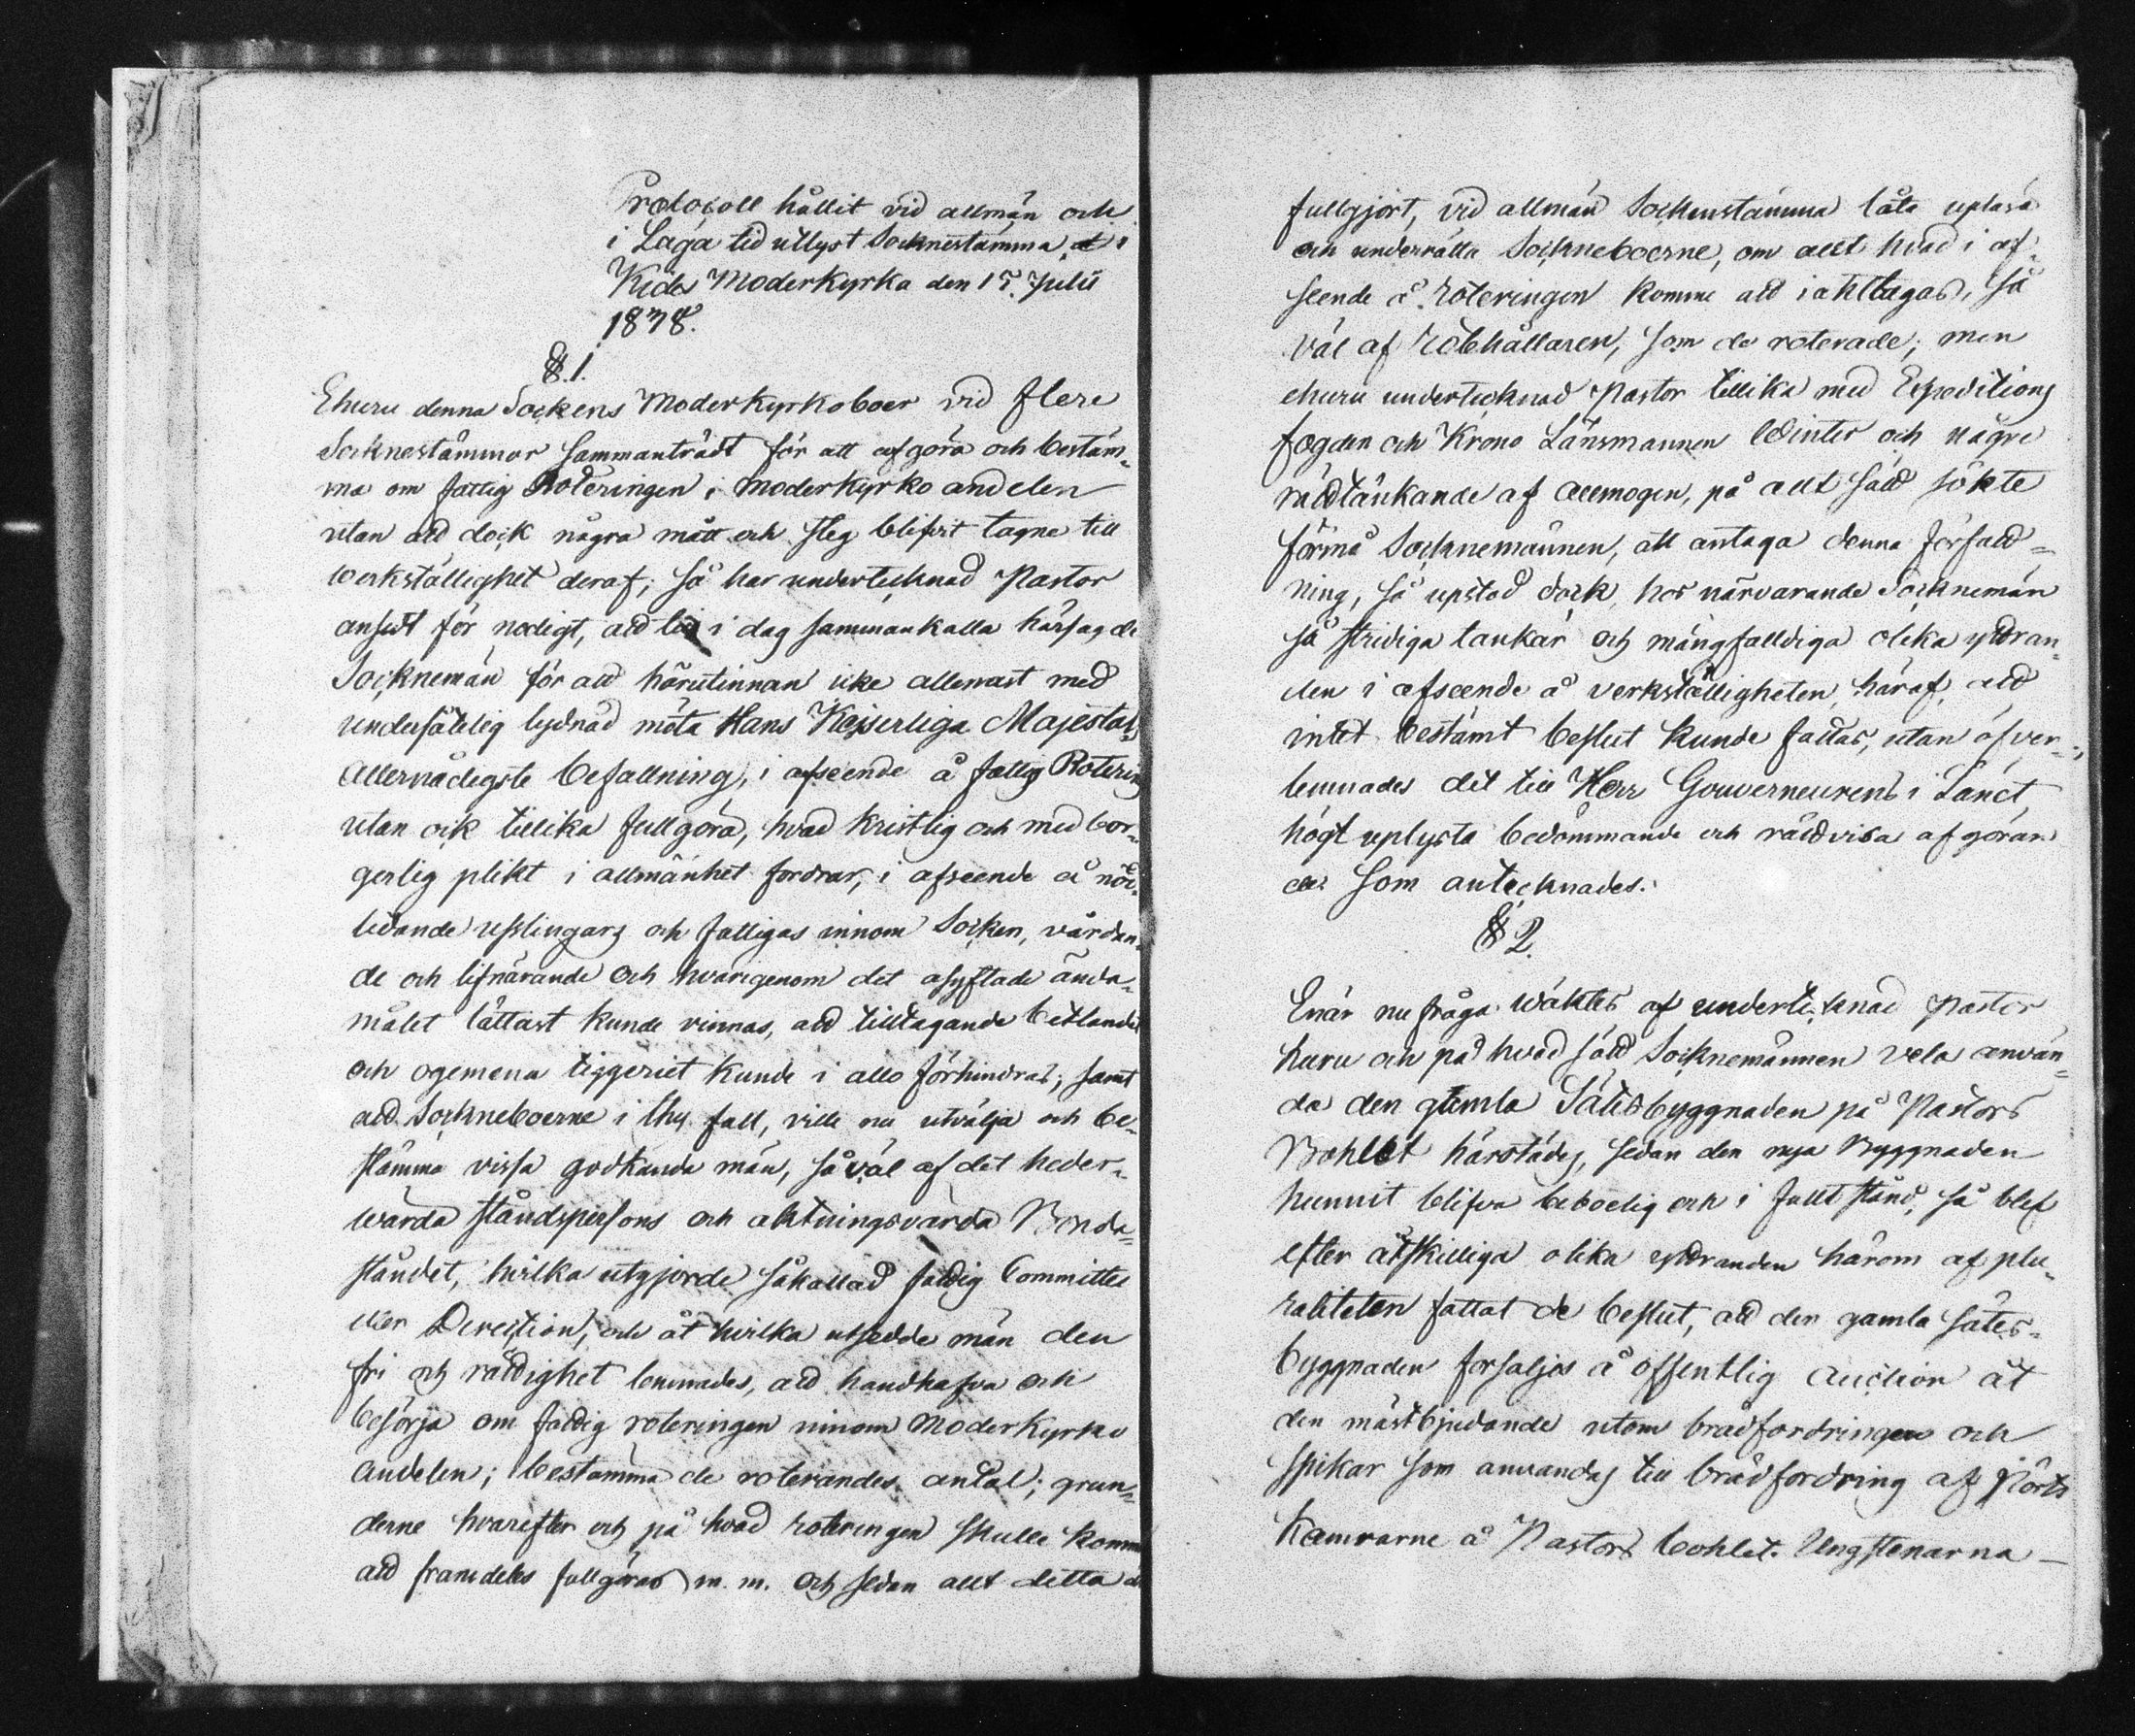 Protocoll hållit vid allmän och
i Laga tid utlyst Socknestämma, i
Kides Moderkyrka den 15. Julii
1838.
§. 1.
Ehuru denna Sockens Moderkyrkoboer vid flere
Socknestämmor sammanträdt för att afgöra och bestäm¬
ma om fattig Roteringen i Moderkyrko andelen
utan att dock några mått och steg blifvit tagne till
werkställighet deraf; så har undertecknad Pastor
ansedt för nodigt, att i dag sammankalla härsagde
Socknemän för att härutinnan icke allenast med
undersåtelig lydnad möta Hans Kejserliga Majestäts
Allernådigste befallning, i afseende å fattig Rotering
utan ock tillika fullgöra, hvad kristlig och medbor¬
gerlig plikt i allmänhet fordrar, i afseende å nöd¬
lidande usslingars och fattigas innom Socken, vårdan¬
de och lifnärande och hvarigenom det asyftade ända¬
målet lättast kunde vinnas, att tilltagande betlandet
och ogemena tiggeriet kunde i allo förhindras; samt
att Sockneboerne i thy fall, ville nu utvälja och be¬
stämma vissa godkända män, såväl af det heder¬
wärda ståndspersons och aktningsvärda Bonde¬
ståndet, hvilka utgjorde såkallad fattig Committee
eller Direction, och åt hvilka utsedde män den
fri och rättighet lemnades, att handhafva och
besörja om fattig roteringen innom Moderkyrko
andelen; bestämma de roterandes antal; grun¬
derne hvarefter och på hvad roteringen skulle komma
att framdeles fullgöras m. m. och sedan allt detta
fullgjort, vid allmän Sockenstämma låta upläsa
och underrätta Sockneboerne, om allt hvad i af¬
seende å Roteringen komme att iakttagas, så
väl af Rotehållaren, som de roterade; men
ehuru undertecknad Pastor tillika med Expeditions
fogden och Krono Länsmannen Winter och några
rättänkande af allmogen, på allt sätt sökte
förmå Socknemännen, att antaga denna författ¬
ning, så upstod dock hos närvarande Socknemän
så stridiga tankar och mångfalldiga olika yttran¬
den i afseende å verkställigheten häraf att
intet bestämt beslut kunde fattas, utan öfver¬
lemnades det till Herr Gouverneurens i Länet,
högt uplysta bedömmande och rättvisa afgöran
de: som antecknades.
§ 2.
Enär nu fråga wäktes af undertecknad Pastor
huru och på hvad sätt Socknemännen vela använ¬
da den gamla Sätesbyggnaden på Pastors
Bohlet härstädes, sedan den nya Byggnaden
hunnit blifva beboelig och i fullt stånd, så blef
efter åtskilliga olika yttranden härom af plu¬
raliteten fattat de beslut, att den gamla sätes¬
byggnaden forsaljes å offentlig Auction åt
den mästbjudande utom brädfordringen och
spikar som anvandas till brädfordring af
Kamrarne å Pastors bohlet. Ungstenarna —